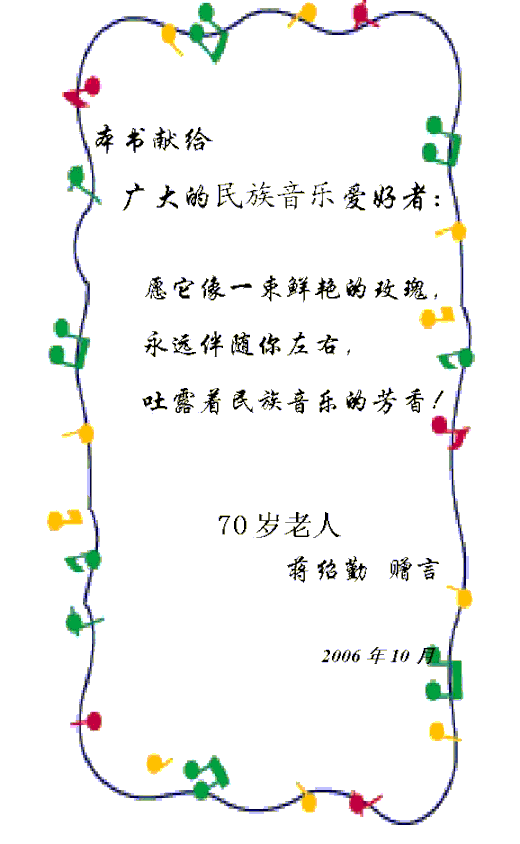 本书献给
广大的民族音乐爱好者：
愿它像一束鲜艳的玫瑰，
永远伴随你左右，
吐露着民族音乐的芳香！
70岁老人
蒋绍勤 赠言
2006年10月